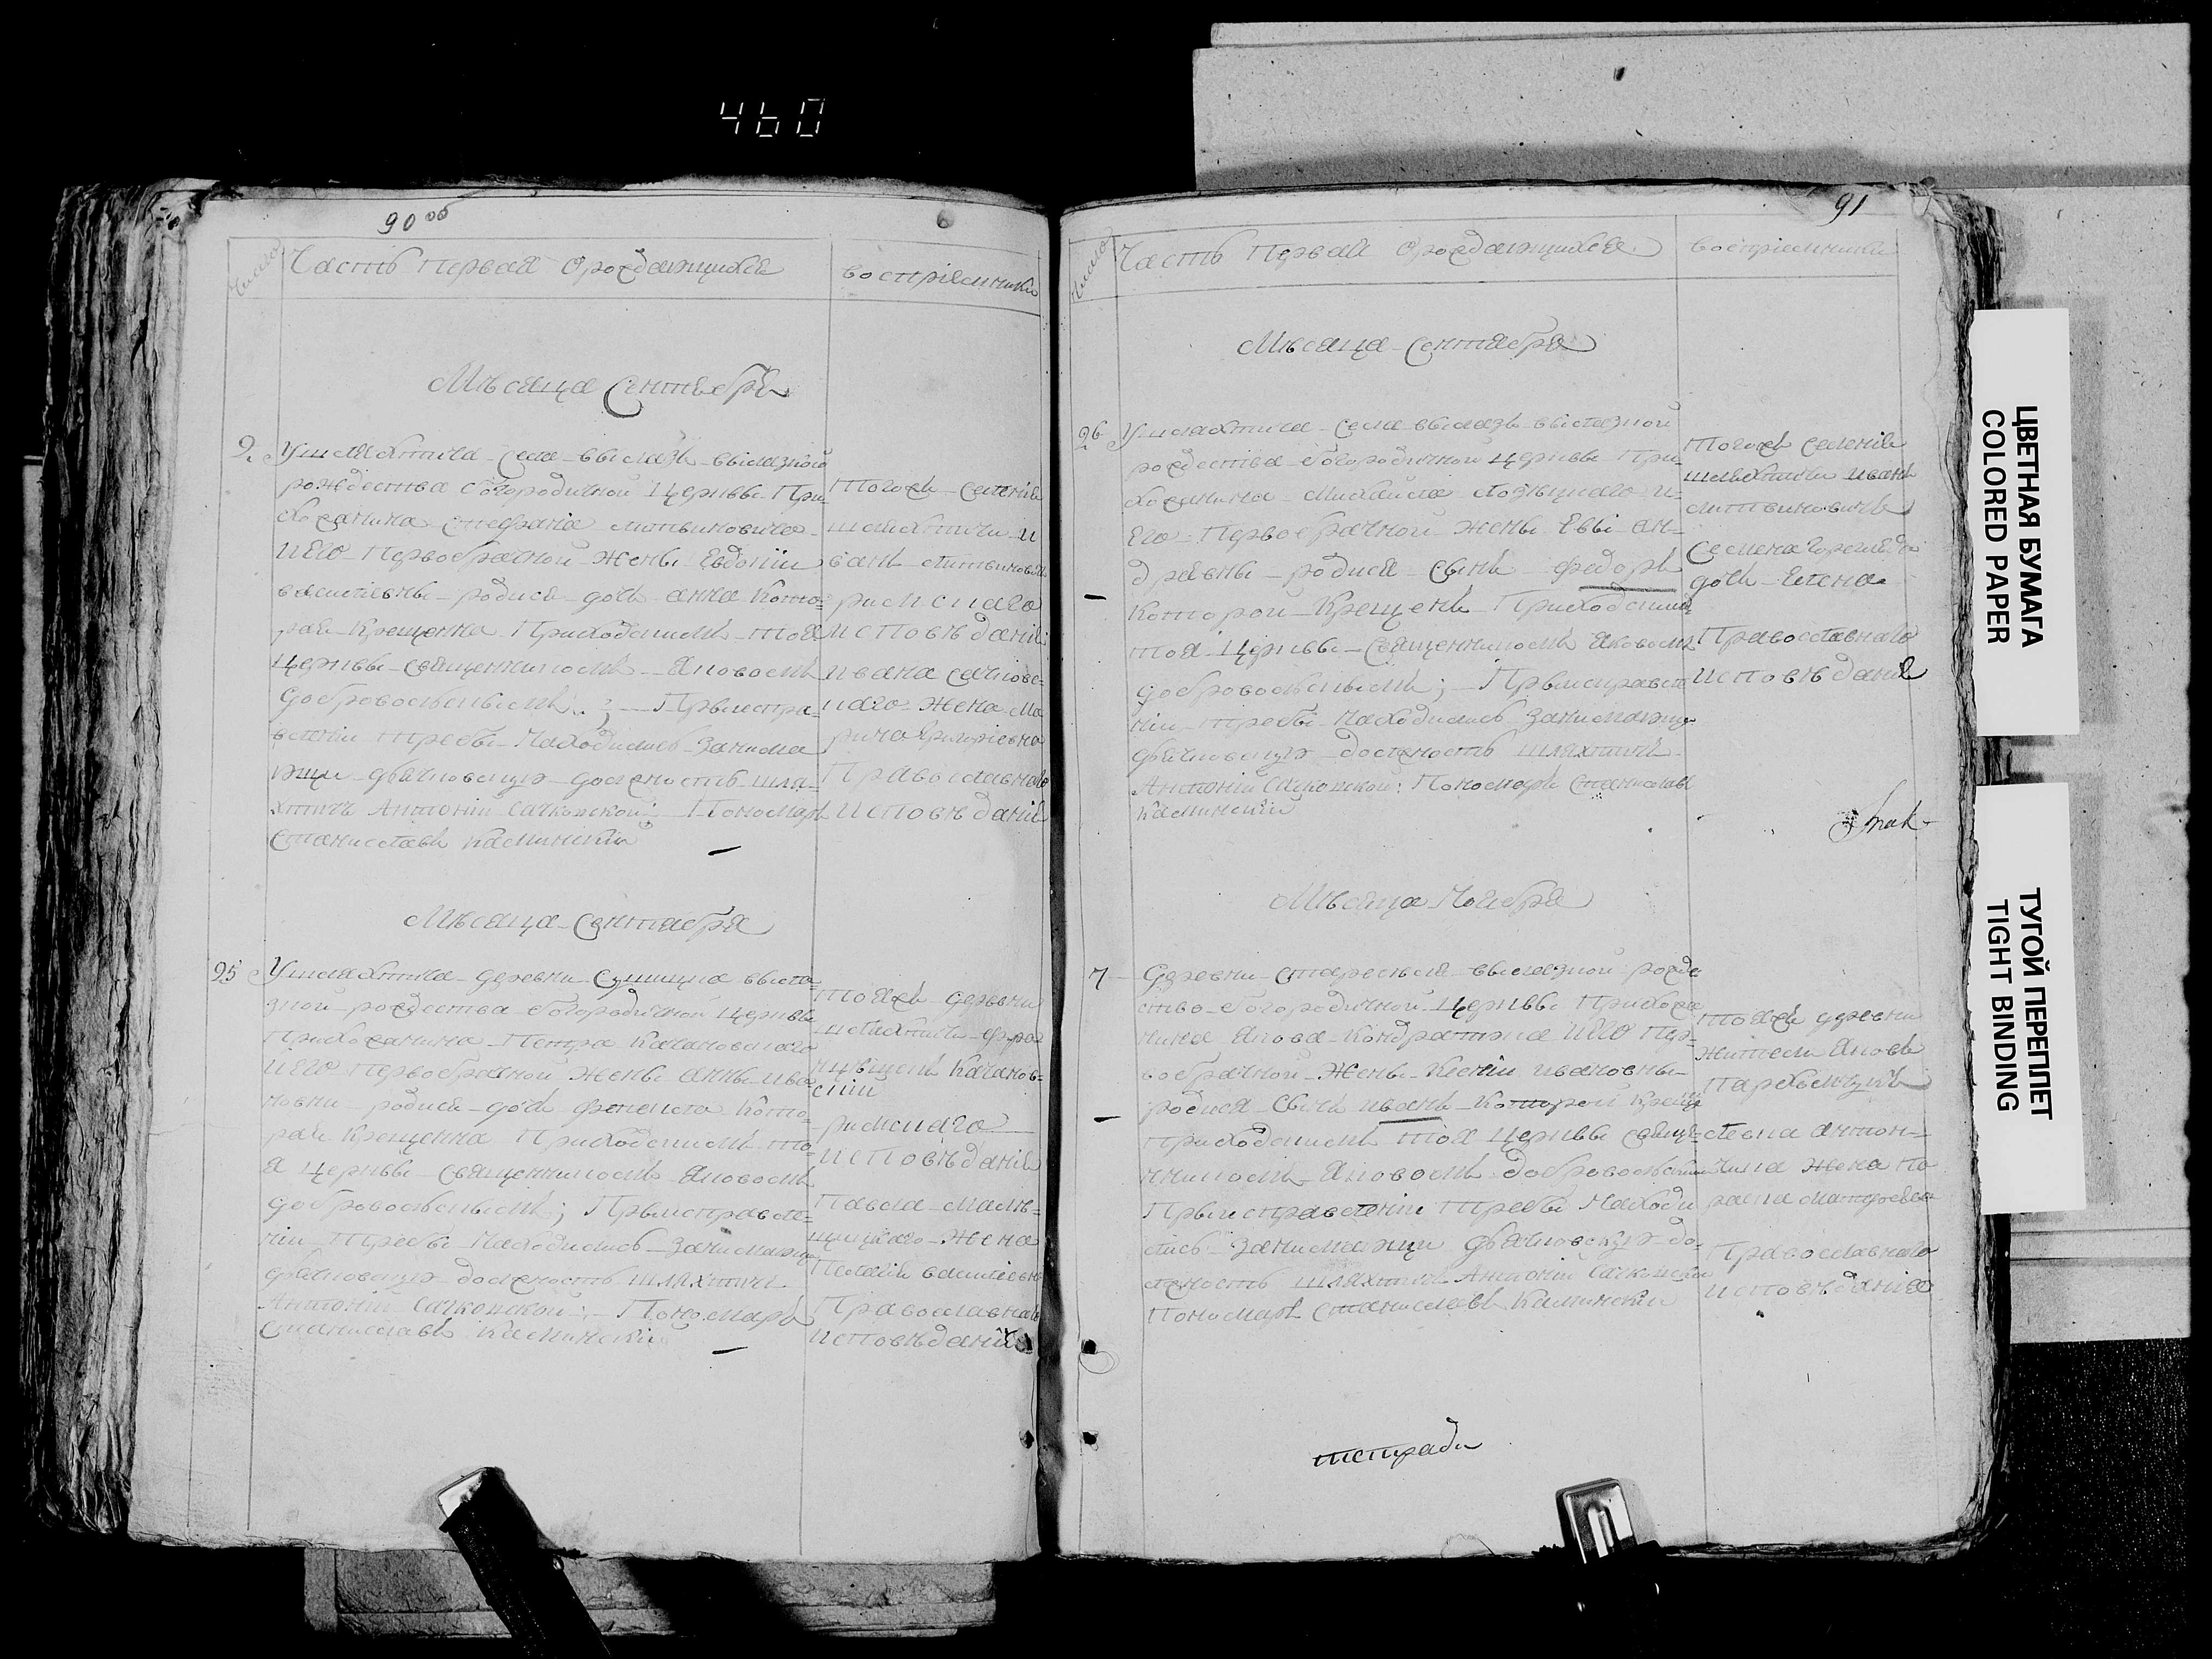 460
90 об
Число
Часть Первая О рождающихся
воспріемники
Мѣсяца Сентебря
9. У шляхтича села вылазъ вылазкой
рождества богородичной Церквѣ При-
хожанина Стефана литвиновича
и Его Первобрачной жены Евдокіи
василіевны родися дочь анна Кото-
рая Крещенна Приходскимъ тоя
Церквы священникомъ Яковомъ
Добровольскимъ; При исправ-
леніи требы находились занима
ющи дьячковскую должность шля-
хтичъ Антоній Сачковской: Пономарь
Станиславъ Каминскій
тогожъ селенія
шляхтичъ и
ванъ литвинови
римскаго
исповѣданія
ивана сачковс-
каго жена Ма
рина Григоріевна
Православнаго
исповѣданія
Мѣсяца Сентября
25 У шляхтича деревни выла-
зкой рождества богородичной Церкви
Прихожанина Петра Качановскаго
и Его Первобрачной жены анны ива
новни родися дочь Кото-
рая Крещенна Приходскимъ то-
я Церквы священникомъ Яковомъ
добровольскимъ; При исправле-
ніи требы находились занимающи
дьячковскую должность шляхтичъ
Антоній Сачковской: Пономарь
Станиславъ Каминскій
тояжъ деревни
шляхтичъ фран
Качанов-
скій
римскаго
исповѣданія
Павла
жена
василіевна
Православнаго
исповѣданія
91
Число
Часть Первая О рождающихся
воспріемники
Мѣсяца Сентября
26 У шляхтича села вылазъ вылазкой
рождества богородичной Церквы При-
хожанина михайла и
Его Первобрачной жены Еввы ан-
дреевны родися сынъ федоръ
Которой Крещенъ Приходскимъ
тоя Церквы священникомъ Яковомъ
Добровольскимъ; При исправле
ніи требы находились занимающи
дьячковскую должность шляхтичъ
Антоній Сачковской: Пономарь Станиславъ
Каминскій
тогожъ селенія
шляхтичъ иванъ
литвиновичъ
Семена
дочь Елена
Православнаго
исповѣданія
Мѣсяца Ноября
7 Деревни вылазкой рожде
ство богородичной Церквы Прихожа
нина Якова Кондратюка и Его Пер-
вобрачной жены Ксеніи ивановны
родися сынъ иванъ Которой Креще
Приходскимъ тоя Церквы свяще-
нникомъ Яковомъ добровольским
При исправленіи требы находи
лись занимающи дьячковскую до-
лжность шляхтичъ Антоній Сачковски
Пономарь Станиславъ Каминскій
тояжъ деревни
житель Яковъ
Пархомчукъ
антон-
чика жена Па
раска
Православнаго
исповѣданія
тетради
ЦВЕТНАЯ БУМАГА
COLORED PAPER
ТУГОЙ ПЕРЕПЛЕТ
TIGHT BINDING